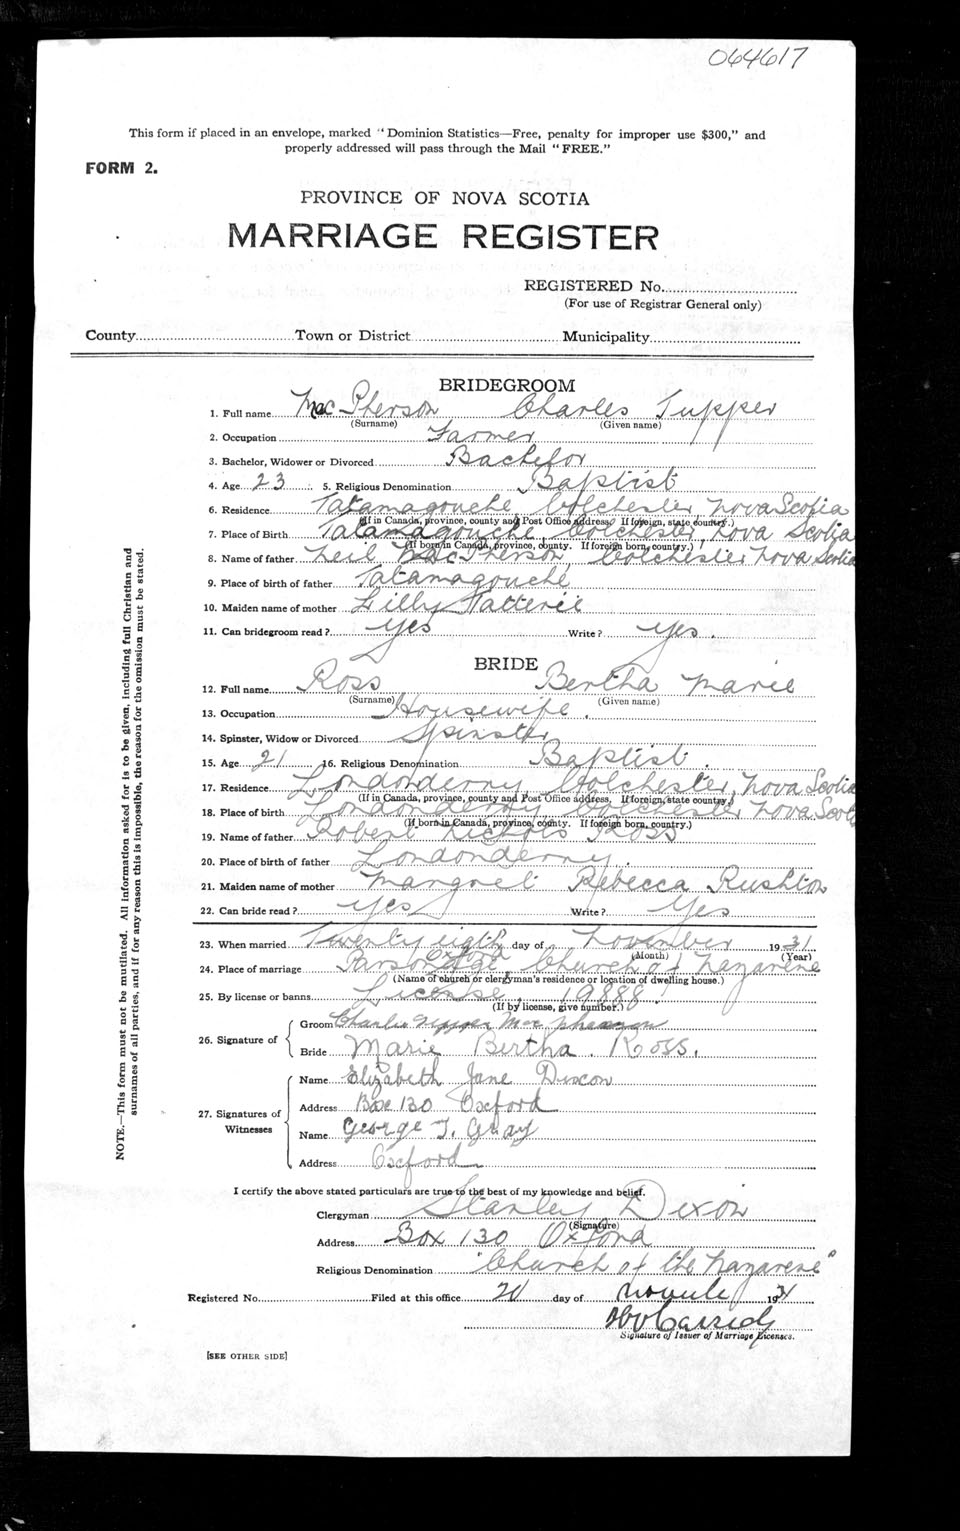 064617
This form if placed in an envelope, marked "Dominion Statistics—Free, penalty for improper use $300," and
properly addressed will pass through the Mail "FREE."
FORM 2.
PROVINCE OF NOVA SCOTIA
MARRIAGE REGISTER
REGISTERED No.
(For use of Registrar General only)
County Town or District Municipality
BRIDEGROOM
1. Full name MacPherson Charles Tupper
(Surname) (Given name)
2. Occupation Farmer
3. Bachelor, Widower or Divorced Bachelor
4. Age 23 5. Religious Denomination Baptist
6. Residence Tatamagouche Colchester Nova Scotia
(If in Canada, province, county and Post Office address. If foreign, state country.)
7. Place of Birth Tatamagouche Colchester, Nova Scotia
(If born in Canada, province, county. If foreign born, country.)
8. Name of father Neil MacPherson, Colchester Nova Scotia
9. Place of birth of father Tatamagouche
10. Maiden name of mother Lilly
11. Can bridegroom read? Yes Write? Yes.
BRIDE
12. Full name Ross Bertha Marie
(Surname) (Given name)
13. Occupation Housewife.
14. Spinster, Widow or Divorced Spinster
15. Age 21 16. Religious Denomination Baptist.
17. Residence Londonderry Colchester, Nova Scotia
(If in Canada, province, county and Post Office address. If foreign, state country.)
18. Place of birth Londonderry Colchester Nova Scotia
(If born in Canada, province, county. If foreign born, country.)
19. Name of father Robert Nichols Ross
20. Place of birth of father Londonderry.
21. Maiden name of mother Margret Rebecca Rushton
22. Can bride read? Yes Write? Yes
23. When married Twenty eigth day of November 1931
(Month) (Year)
Oxford
24. Place of marriage Parsonage Church of Nazarene
(Name of church or clergyman's residence or location of dwelling house.)
25. By license or banns License. 19888
(If by license, give number.)
26. Signature of
Groom Charlie Tupper MacPherson
Bride Marie Bertha. Ross.
27. Signatures of Witnesses
Name Elizabeth Jane Dixon
Address Box 130 Oxford
Name George T. Gray
Address Oxford
I certify the above stated particulars are true to the best of my knowledge and belief.
Clergyman Stanley Dixon
(Signature)
Address Box 130 Oxford
Religious Denomination "Church of the Nazarene"
Registered No. Filed at this office day of 1931
Signature of Issuer of Marriage Licenses.
[SEE OTHER SIDE]
NOTE.—This form must not be mutilated. All information asked for is to be given, including full Christian and
surnames of all parties, and if for any reason this is impossible, the reason for the omission must be stated.